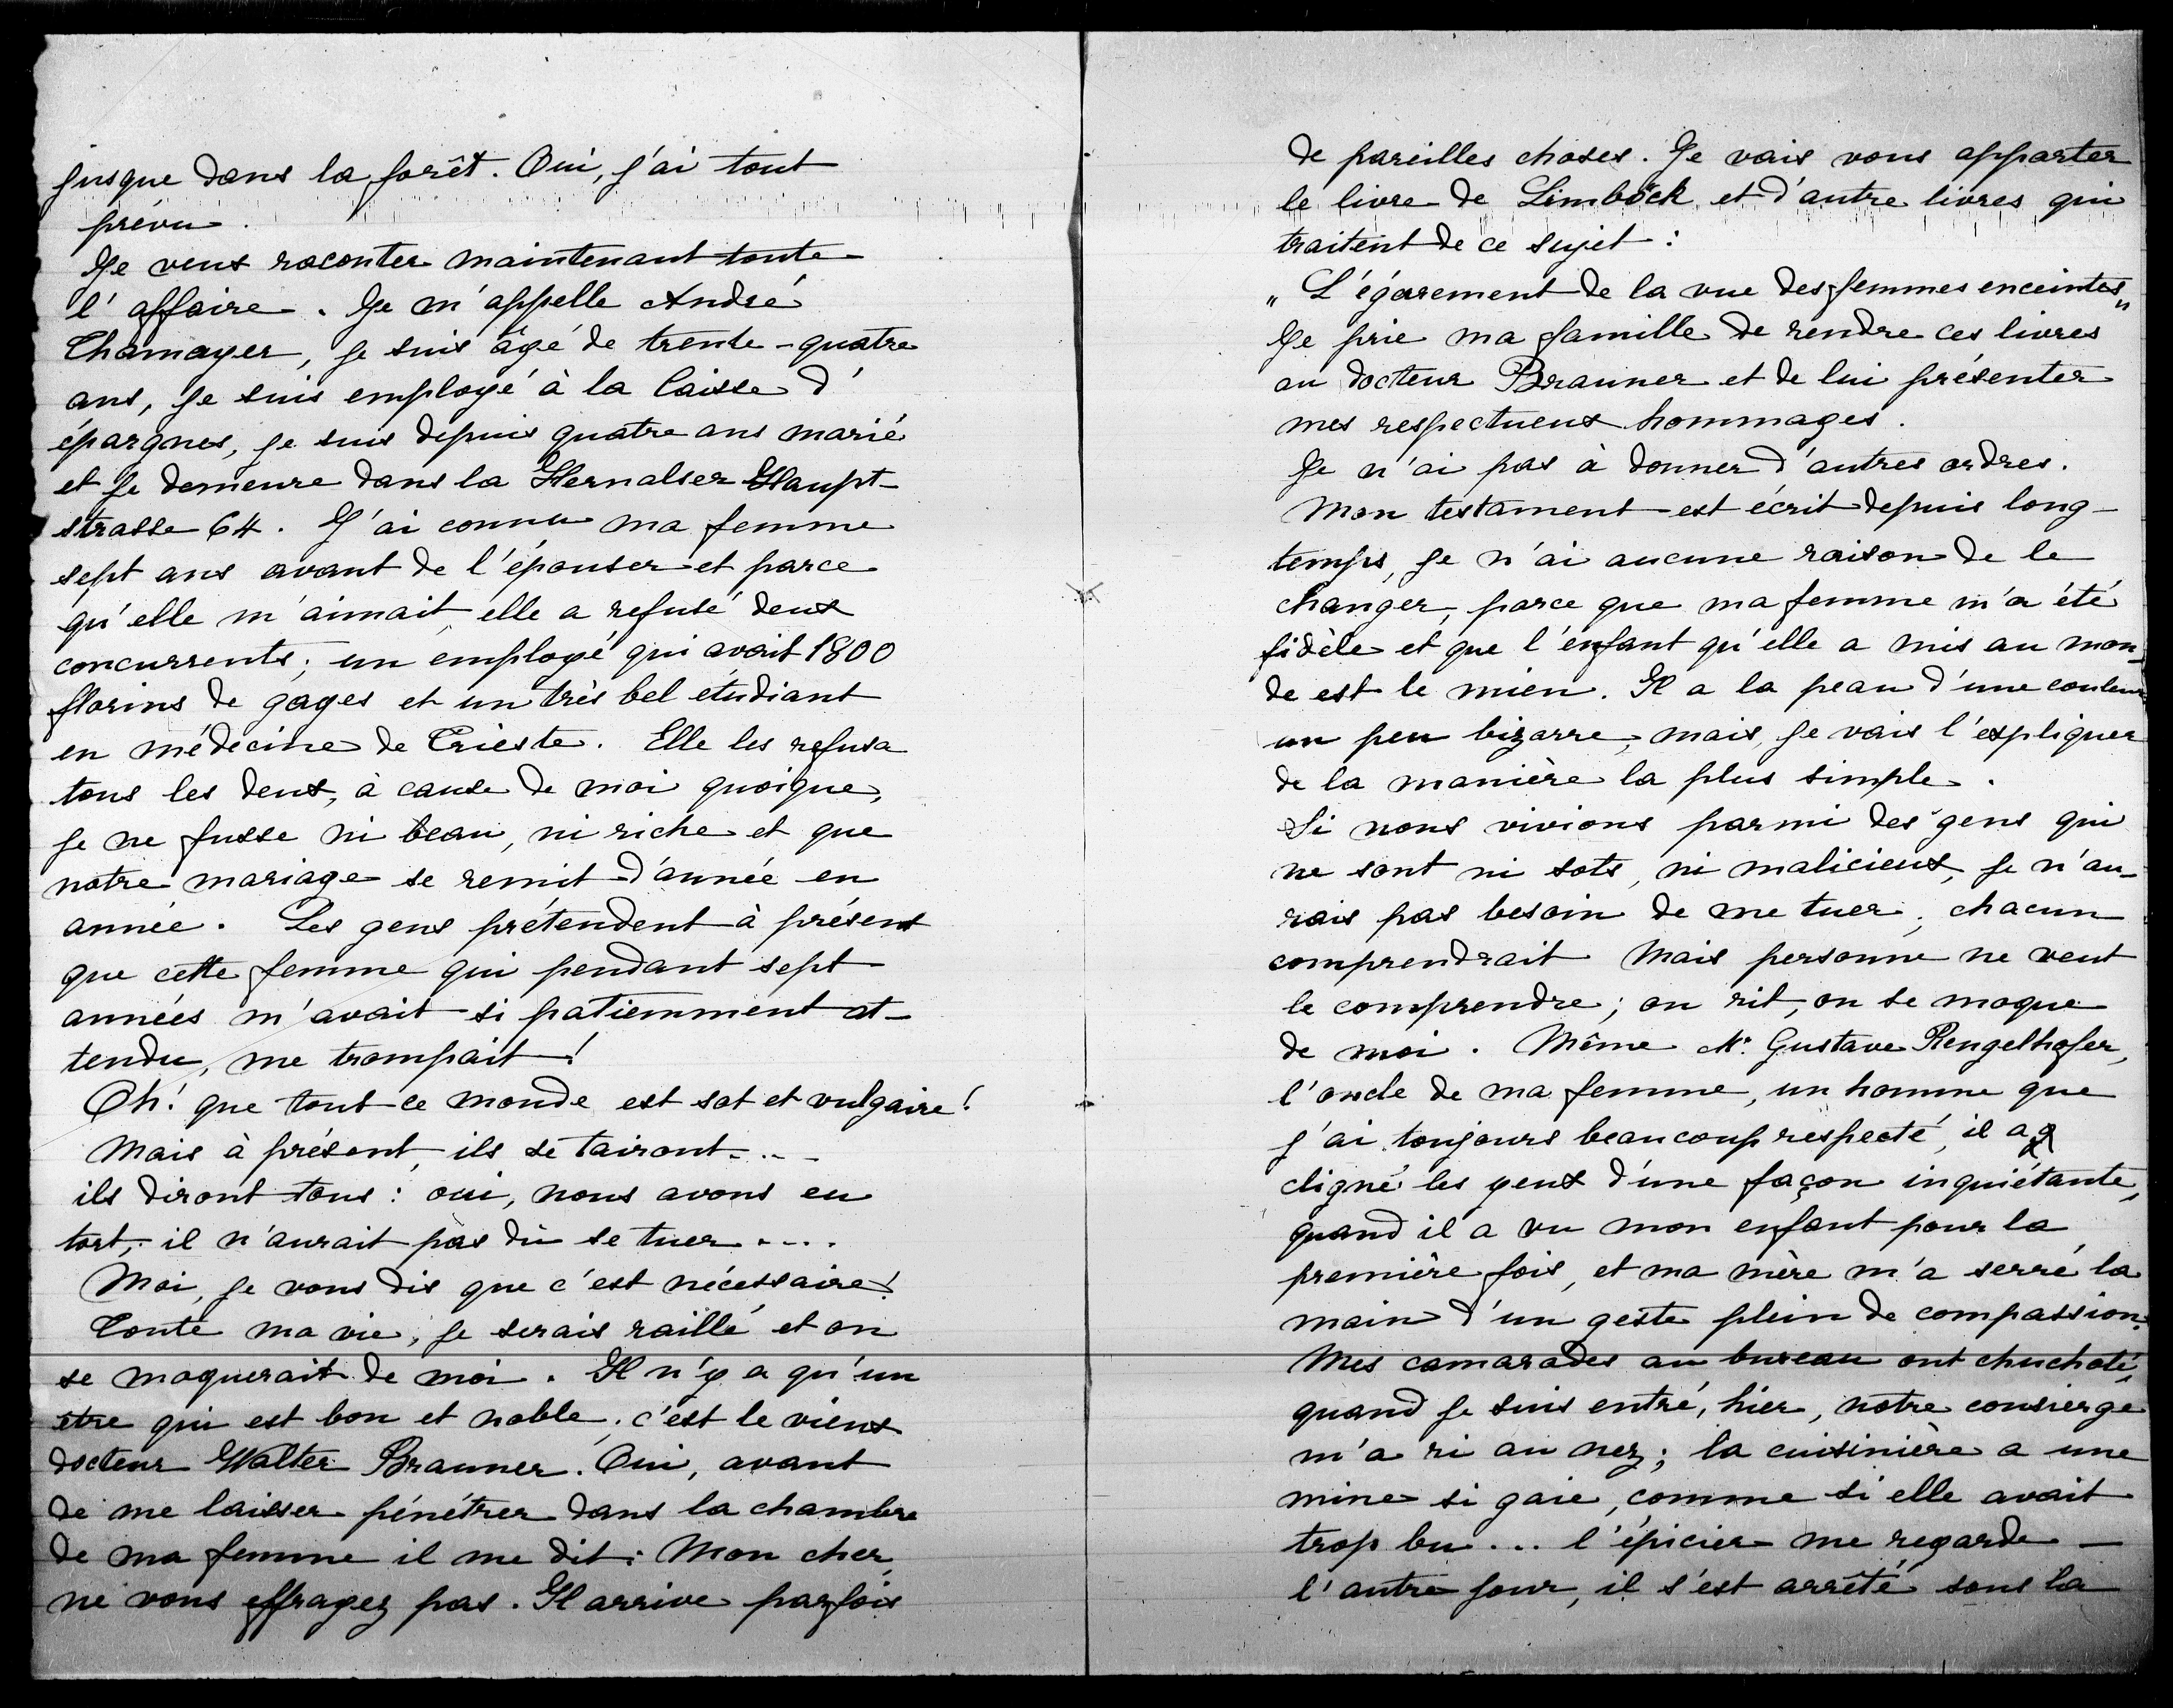 jusque dans la forêt. Oui, j'ai tout
prévu.
Je veux raconter maintenant toute
l'affaire. Je m'appelle André
Thamayer, je suis âgé de trente-quatre
ans, je suis employé à la Caisse d'
épargnes, je suis depuis quatre ans marié
et je demeure dans la Hernalser Haupt-
strasse 64. J'ai connu ma femme
sept ans avant de l'épouser et parce
qu'elle m'aimait, elle a refusé deux
concurrents; un employé qui avait 1800
florins de gages et un très bel étudiant
en médecine de Trieste. Elle les refusa
tous les deux, à cause de moi quoique,
je ne fusse ni beau, ni riche et que
notre mariage se remit d'année en
année. Les gens prétendent à présent
que cette femme qui pendant sept
années m'avait si patiemment at-
tendu, me trompait!
Oh! que tout ce monde est sot et vulgaire!
Mais à présent, ils se tairont....
ils diront tous: oui, nous avons eu
tort, il n'aurait pas dû se tuer....
Moi, je vous dis que c'est nécessaire!
Toute ma vie, je serais raillé et on
se moquerait de moi. Il n'y a qu'un
être qui est bon et noble; c'est le vieux
docteur Walter Brauner. Oui, avant
de me laisser pénétrer dans la chambre
de ma femme il me dit: Mon cher,
ne vous effrayez pas. Il arrive parfois
de pareilles choses. Je vais vous apporter
le livre de Limböck et d'autre livres qui
traitent de ce sujet:
„L'égarement de la vue des femmes enceintes"
Je prie ma famille de rendre ces livres
au docteur Brauner et de lui présenter
mes respectueux hommages.
Je n'ai pas à donner d'autres ordres.
Mon testament est écrit depuis long-
temps, je n'ai aucune raison de le
changer, parce que ma femme m'a été
fidèle et que l'enfant qu'elle a mis au mon-
de est le mien. Il a la peau d'une couleur
un peu bizarre, mais, je vais l'expliquer
de la manière la plus simple.
Si nous vivions parmi des gens qui
ne sont ni sots, ni malicieux, je n'au-
rais pas besoin de me tuer, chacun
comprendrait Mais personne ne veut
le comprendre; on rit, on se moque
de moi. Même Mr. Gustave Rengelhofer,
l'oncle de ma femme, un homme que
j'ai toujours beaucoup respecté, il a
cligné les yeux d'une façon inquiétante,
quand il a vu mon enfant pour la
première fois, et ma mère m'a serré la
main d'un geste plein de compassion.
Mes camarades au bureau ont chuchoté,
quand je suis entré, hier, notre consierge
m'a ri au nez; la cuisinière a une
mine si gaie, comme si elle avait
trop bu... l'épicier me regarde —
l'autre jour, il s'est arrêté sous la